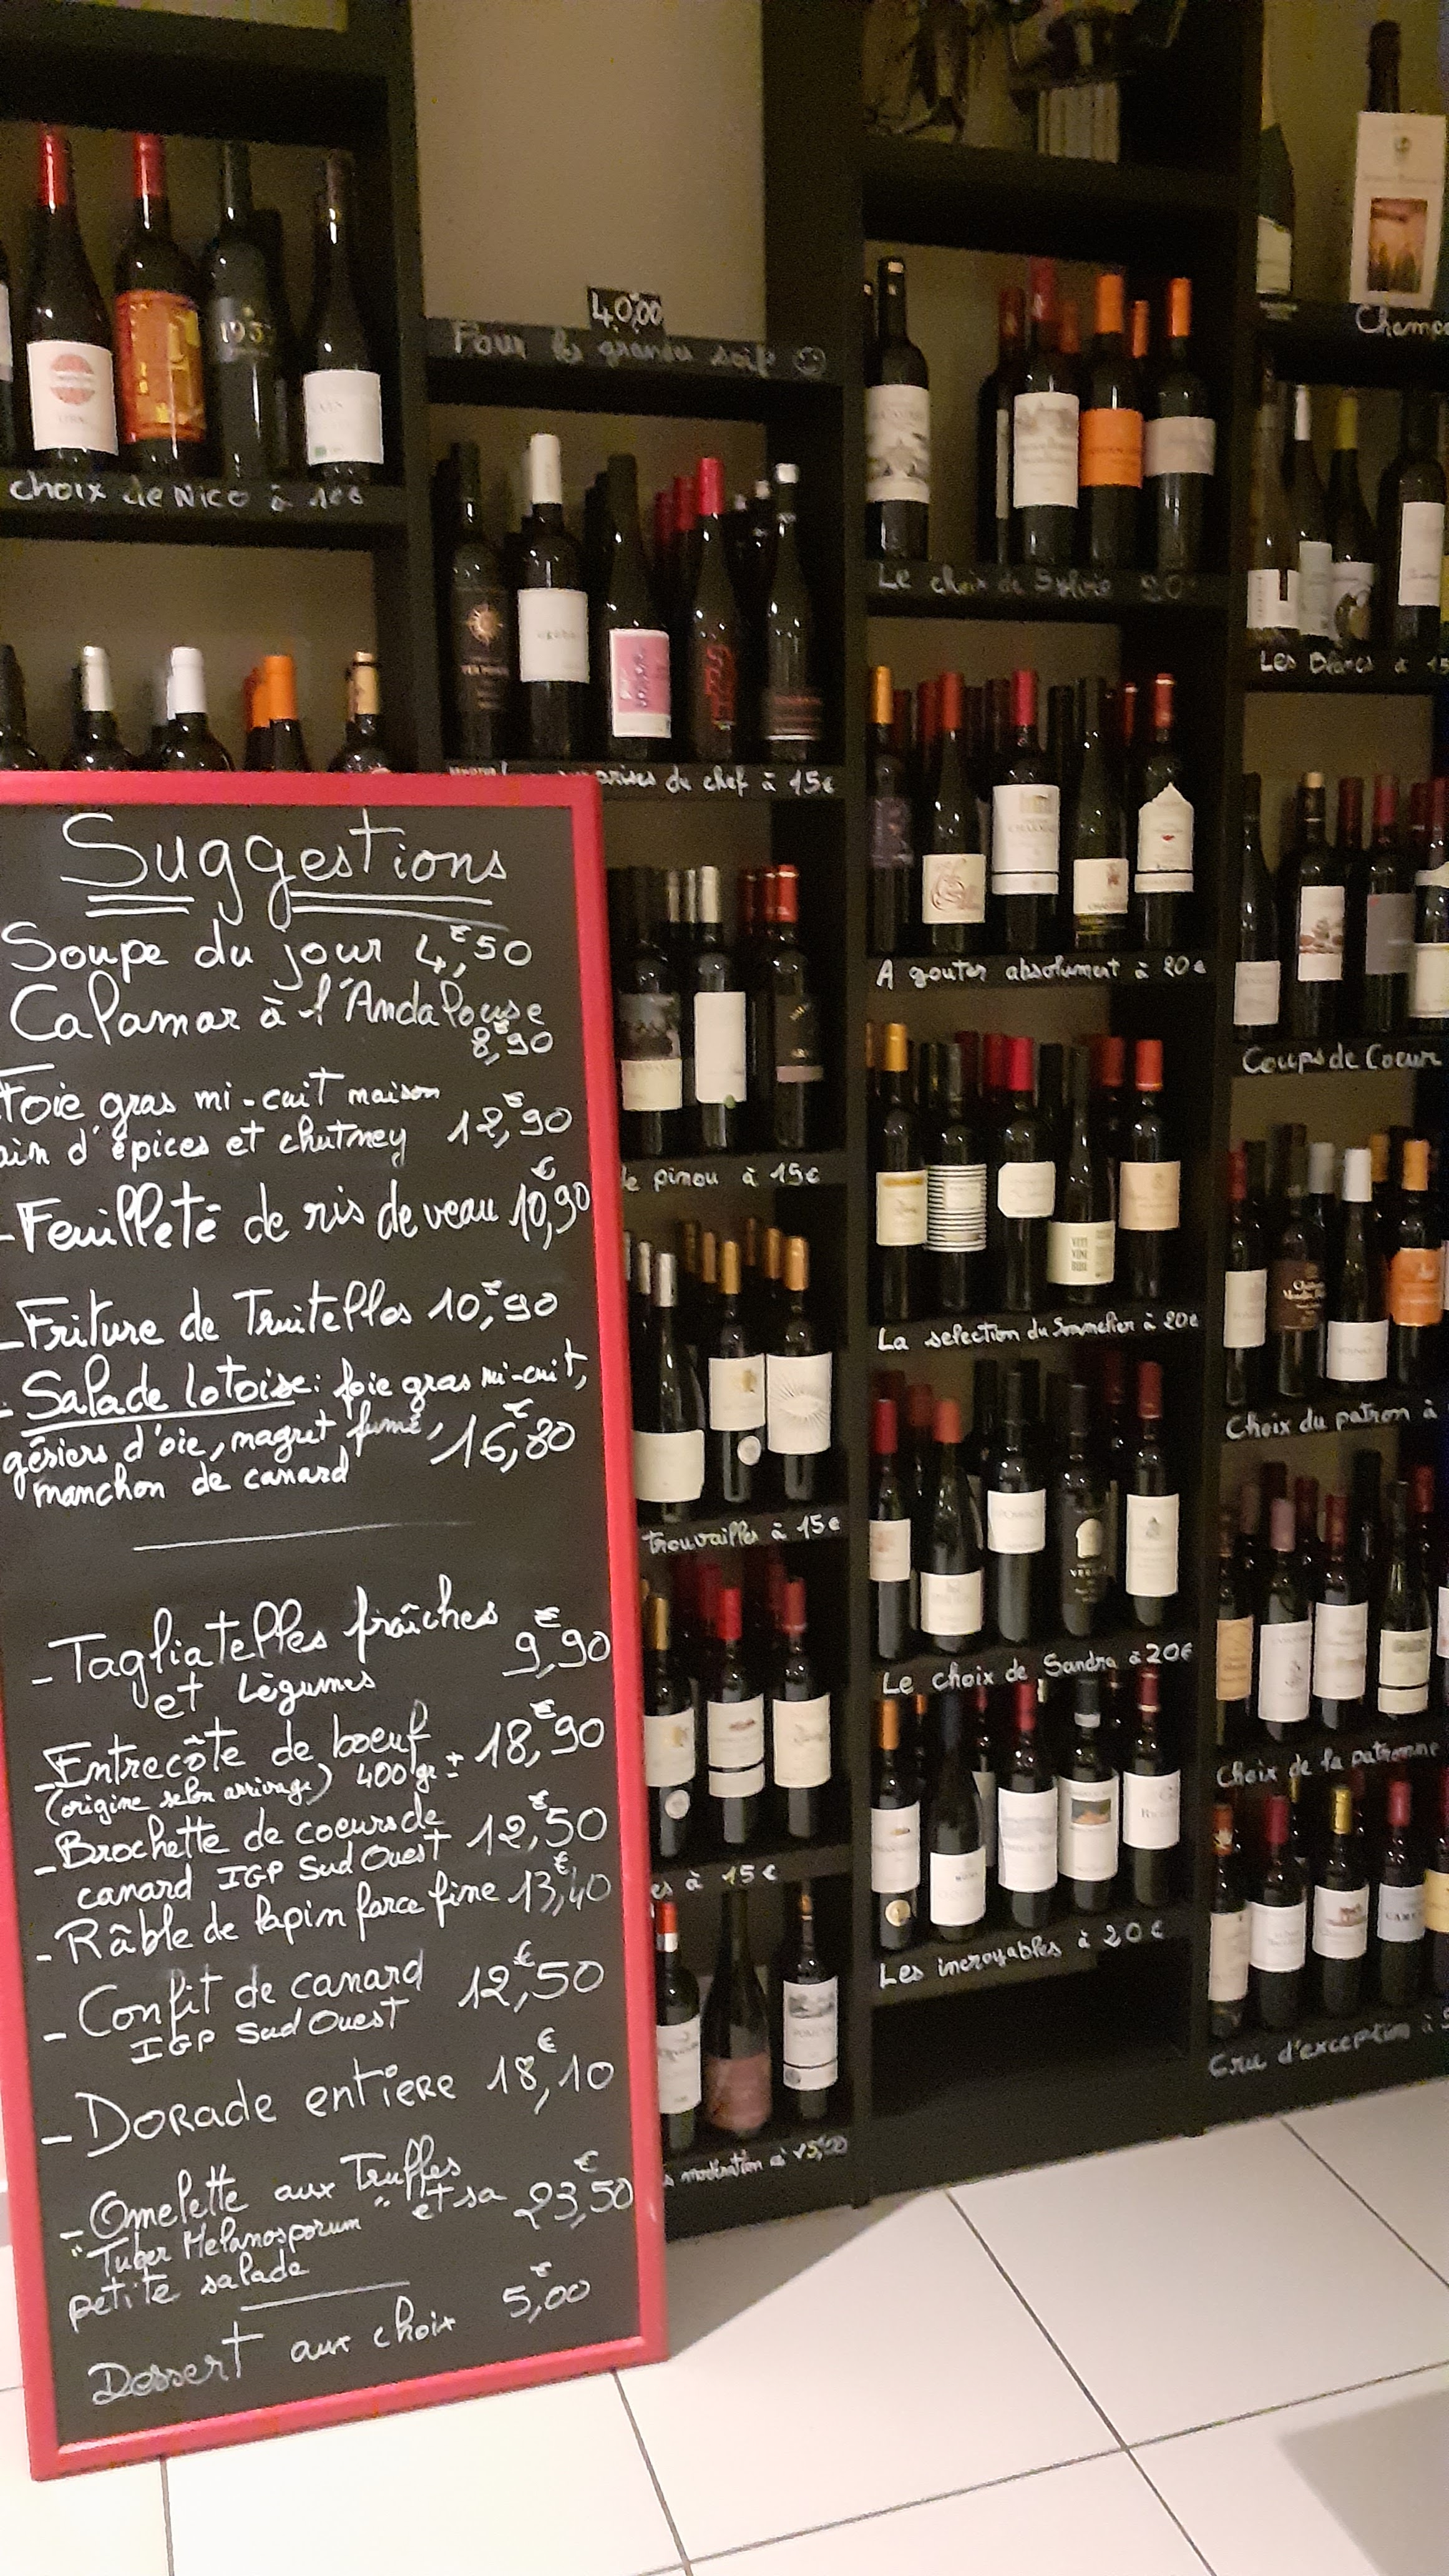 Suggestions
Soupe du jour 4,€50
Calamar à l'Andalouse
8,€90
Foie gras mi-cuit maison
ain d'épices et chutney 12,€90
- Feuilleté de ris de veau 10,€90
- Friture de Truitelles 10,€90
- Salade lotoise: foie gras mi-cuit,
gésiers d'oie, magret fumé, 16,€80
manchon de canard
- Tagliatelles fraîches
et Légumes 9,€90
- Entrecôte de boeuf
(origine selon arrivage) 400 gr ± 18,€90
- Brochette de coeurs de
canard IGP Sud Ouest 12,€50
- Râble de lapin farce fine 13,€40
- Confit de canard 12,€50
IGP Sud Ouest
- DORADE entiERE 18,€10
- Omelette aux Truffes
"Tuber Melanosporum" et sa 23,€50
petite salade
Dessert aux choix 5,€00
choix de Nico à 10€
40,00
Pour les grandes soifs
rises du chef à 15€
le pinou à 15€
trouvailles à 15€
es à 15€
s modération à 15,00
Le choix de Sylvie 20
A gouter absolument à 20€
La selection du Sommelier à 20€
Le choix de Sandra à 20€
Les incroyables à 20€
Les Blancs à 15
Coups de Coeur
Choix du patron à
Choix de la patronne
Cru d'exception à